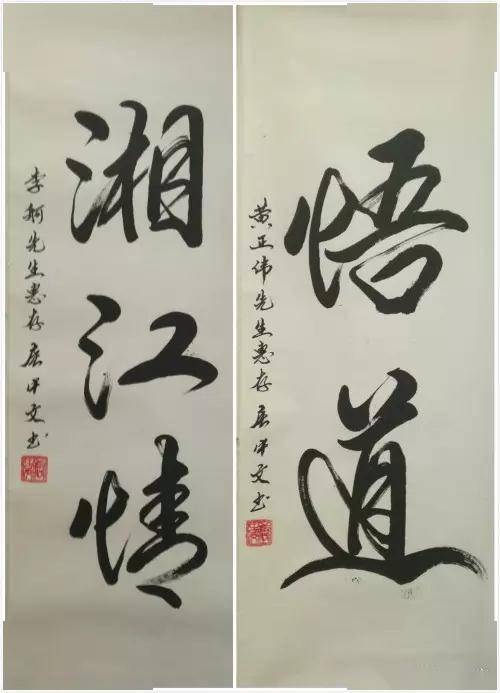 悟道
黄正伟先生惠存 中文书
湘江情
李 先生惠存 中文书